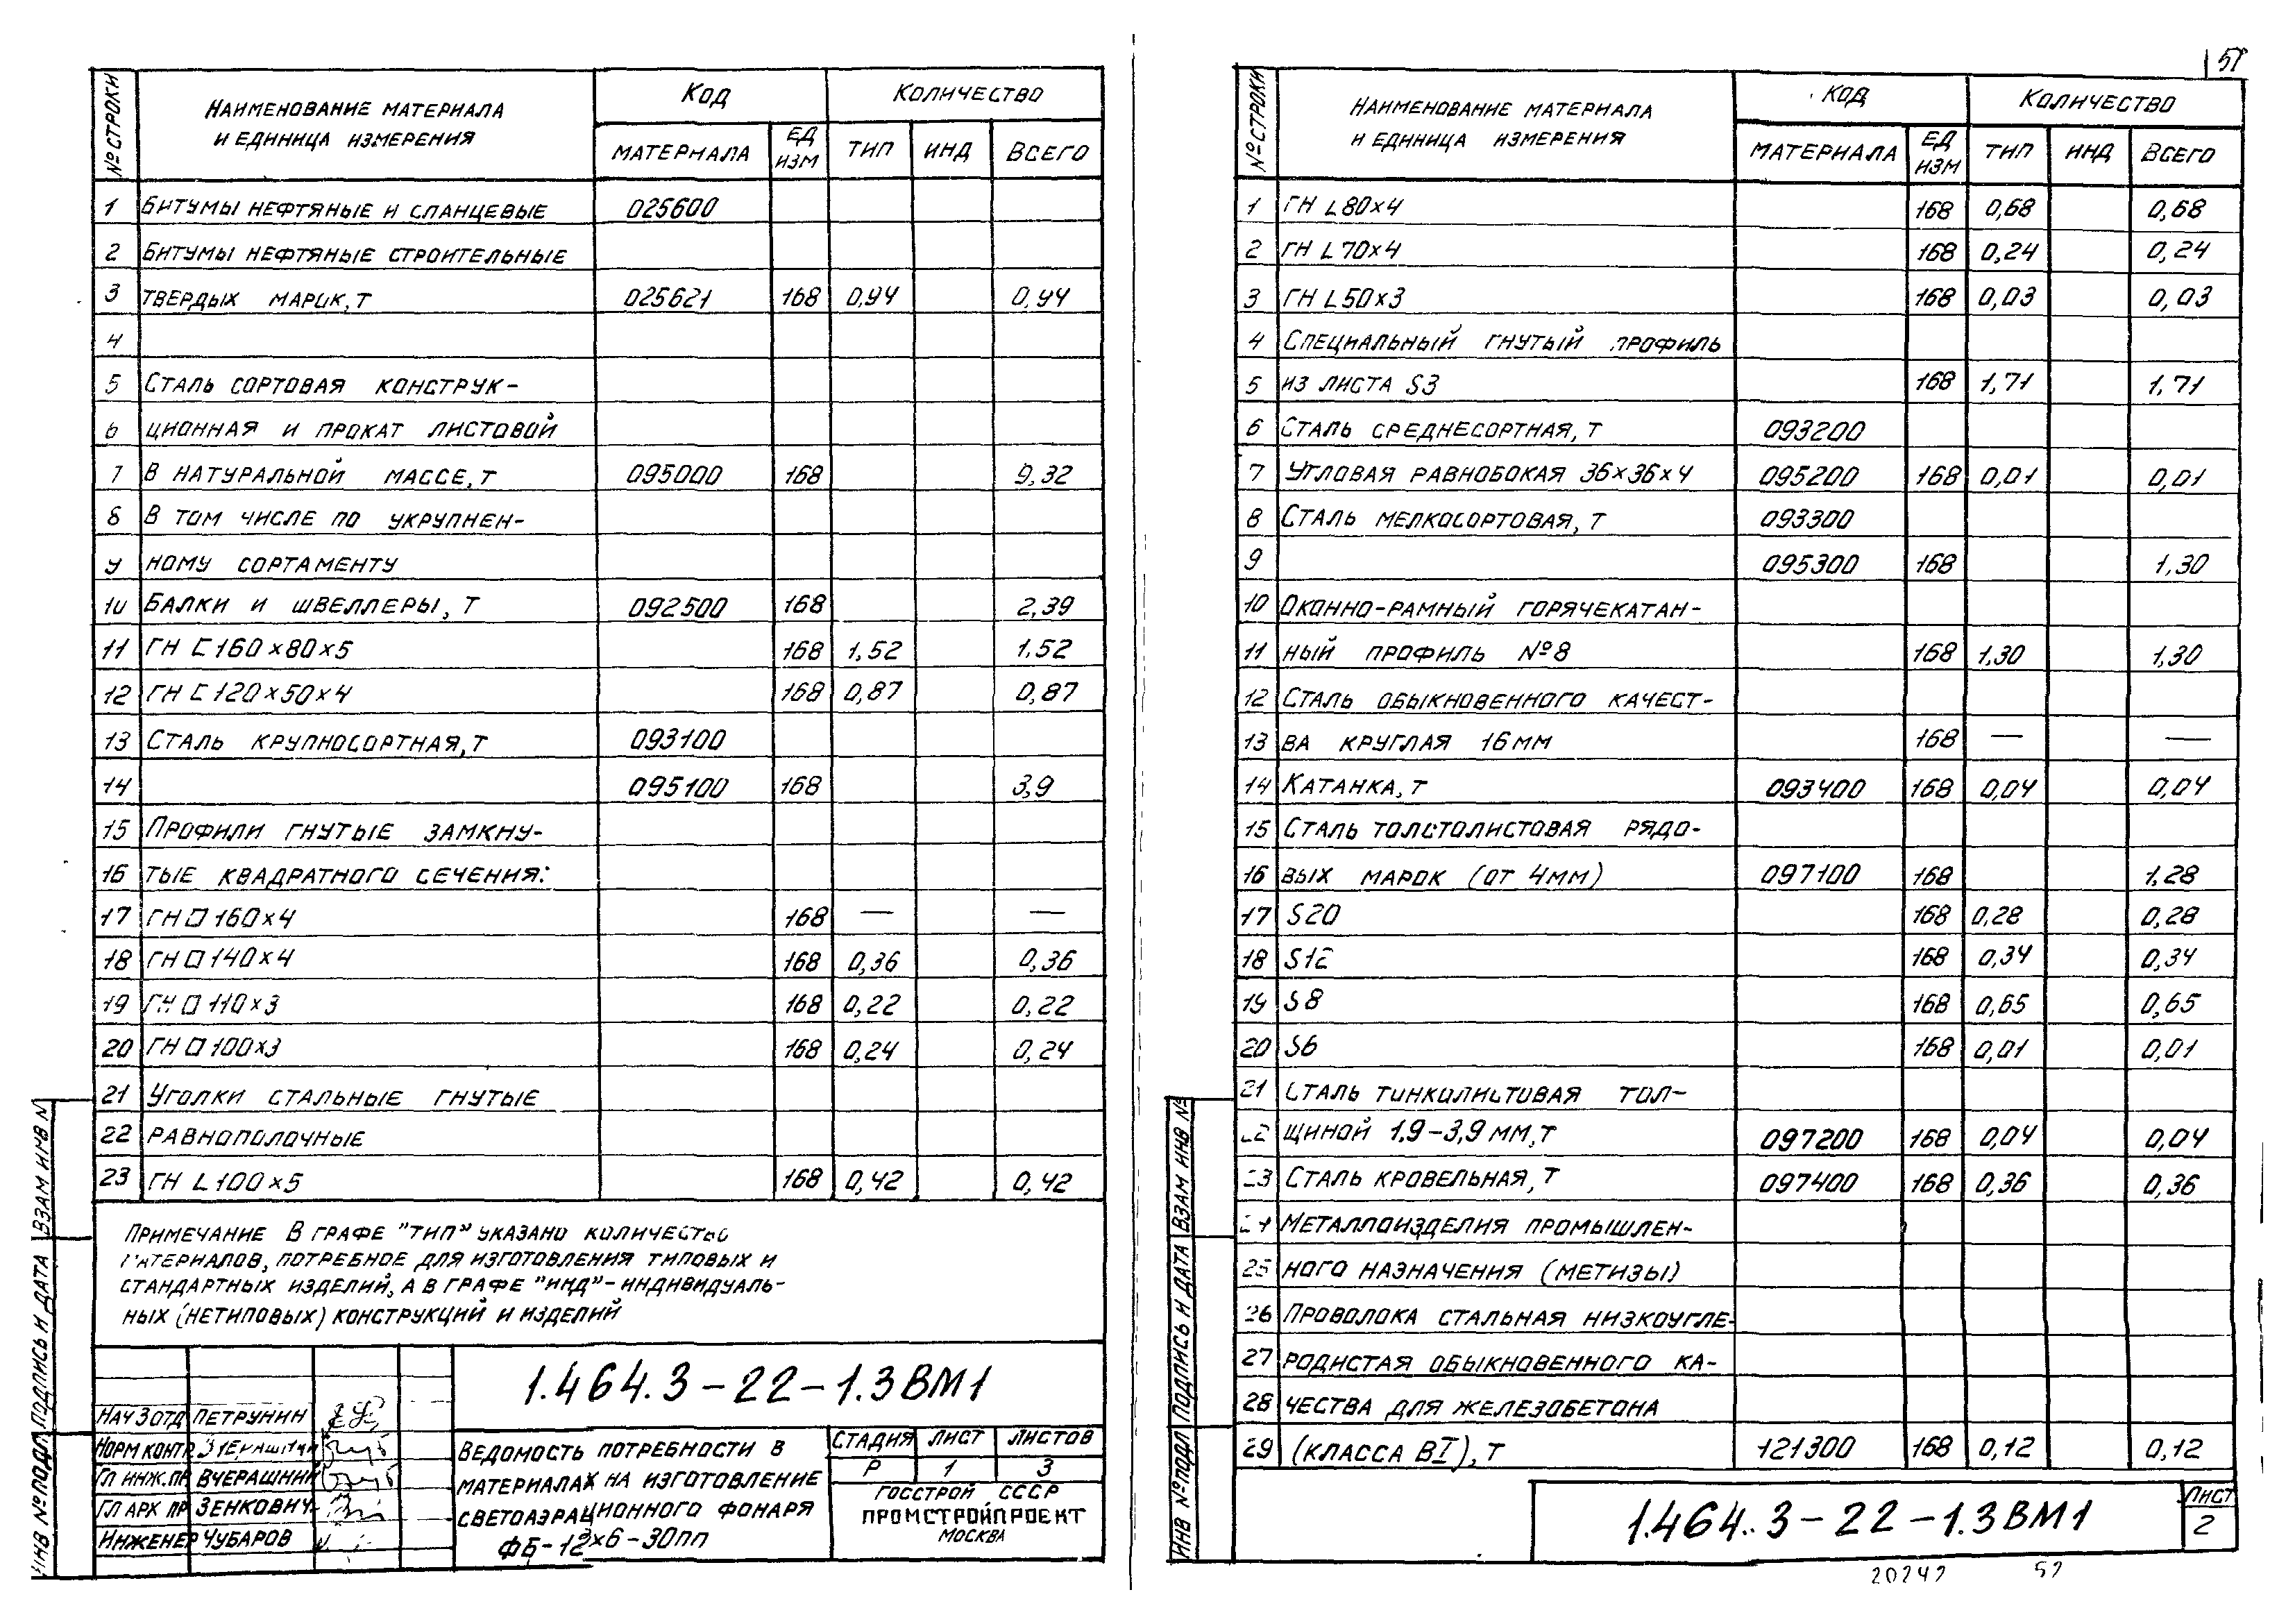 № СТРОКИ | НАИМЕНОВАНИЕ МАТЕРИАЛА И ЕДИНИЦА ИЗМЕРЕНИЯ | КОД | КОЛИЧЕСТВО
МАТЕРИАЛА | ЕД ИЗМ | ТИП | ИНД | ВСЕГО
1 БИТУМЫ НЕФТЯНЫЕ И СЛАНЦЕВЫЕ 025600
2 БИТУМЫ НЕФТЯНЫЕ СТРОИТЕЛЬНЫЕ
3 ТВЕРДЫХ МАРОК, Т 025621 168 0,94 0,94
4
5 СТАЛЬ СОРТОВАЯ КОНСТРУК-
6 ЦИОННАЯ И ПРОКАТ ЛИСТОВОЙ
7 В НАТУРАЛЬНОЙ МАССЕ, Т 095000 168 9,32
8 В ТОМ ЧИСЛЕ ПО УКРУПНЕН-
9 НОМУ СОРТАМЕНТУ
10 БАЛКИ И ШВЕЛЛЕРЫ, Т 092500 168 2,39
11 ГН [ 160×80×5 168 1,52 1,52
12 ГН [ 120×50×4 168 0,87 0,87
13 СТАЛЬ КРУПНОСОРТНАЯ, Т 093100
14 095100 168 3,9
15 ПРОФИЛИ ГНУТЫЕ ЗАМКНУ-
16 ТЫЕ КВАДРАТНОГО СЕЧЕНИЯ:
17 ГН □ 160×4 168 — —
18 ГН □ 140×4 168 0,36 0,36
19 ГН □ 110×3 168 0,22 0,22
20 ГН □ 100×3 168 0,24 0,24
21 УГОЛКИ СТАЛЬНЫЕ ГНУТЫЕ
22 РАВНОПОЛОЧНЫЕ
23 ГН L 100×5 168 0,42 0,42
ПРИМЕЧАНИЕ В ГРАФЕ "ТИП" УКАЗАНО КОЛИЧЕСТВО
МАТЕРИАЛОВ, ПОТРЕБНОЕ ДЛЯ ИЗГОТОВЛЕНИЯ ТИПОВЫХ И
СТАНДАРТНЫХ ИЗДЕЛИЙ, А В ГРАФЕ "ИНД" - ИНДИВИДУАЛЬ-
НЫХ (НЕТИПОВЫХ) КОНСТРУКЦИЙ И ИЗДЕЛИЙ
1.464.3-22-1.3ВМ1
НАЧ ЗОТД ПЕТРУНИН
НОРМ КОНТР
ГЛ ИНЖ. ПР ВЧЕРАШНИЙ
ГЛ АРХ ПР ЗЕНКОВИЧ
ИНЖЕНЕР ЧУБАРОВ
ВЕДОМОСТЬ ПОТРЕБНОСТИ В
МАТЕРИАЛАХ НА ИЗГОТОВЛЕНИЕ
СВЕТОАЭРАЦИОННОГО ФОНАРЯ
ФБ-12×6-30ПП
СТАДИЯ ЛИСТ ЛИСТОВ
Р 1 3
ГОССТРОЙ СССР
ПРОМСТРОЙПРОЕКТ
МОСКВА
ИНВ № ПОДЛ ПОДПИСЬ И ДАТА ВЗАМ ИНВ №
№ СТРОКИ | НАИМЕНОВАНИЕ МАТЕРИАЛА И ЕДИНИЦА ИЗМЕРЕНИЯ | КОД | КОЛИЧЕСТВО
МАТЕРИАЛА | ЕД ИЗМ | ТИП | ИНД | ВСЕГО
1 ГН L 80×4 168 0,68 0,68
2 ГН L 70×4 168 0,24 0,24
3 ГН L 50×3 168 0,03 0,03
4 СПЕЦИАЛЬНЫЙ ГНУТЫЙ ПРОФИЛЬ
5 ИЗ ЛИСТА S3 168 1,71 1,71
6 СТАЛЬ СРЕДНЕСОРТНАЯ, Т 093200
7 УГЛОВАЯ РАВНОБОКАЯ 36×36×4 095200 168 0,01 0,01
8 СТАЛЬ МЕЛКОСОРТОВАЯ, Т 093300
9 095300 168 1,30
10 ОКОННО-РАМНЫЙ ГОРЯЧЕКАТАН-
11 НЫЙ ПРОФИЛЬ №8 168 1,30 1,30
12 СТАЛЬ ОБЫКНОВЕННОГО КАЧЕСТ-
13 ВА КРУГЛАЯ 16ММ 168 — —
14 КАТАНКА, Т 093400 168 0,04 0,04
15 СТАЛЬ ТОЛСТОЛИСТОВАЯ РЯДО-
16 ВЫХ МАРОК (ОТ 4ММ) 097100 168 1,28
17 S20 168 0,28 0,28
18 S12 168 0,34 0,34
19 S8 168 0,65 0,65
20 S6 168 0,01 0,01
21 СТАЛЬ ТОНКОЛИСТОВАЯ ТОЛ-
22 ЩИНОЙ 1,9-3,9 ММ, Т 097200 168 0,04 0,04
23 СТАЛЬ КРОВЕЛЬНАЯ, Т 097400 168 0,36 0,36
24 МЕТАЛЛОИЗДЕЛИЯ ПРОМЫШЛЕН-
25 НОГО НАЗНАЧЕНИЯ (МЕТИЗЫ)
26 ПРОВОЛОКА СТАЛЬНАЯ НИЗКОУГЛЕ-
27 РОДИСТАЯ ОБЫКНОВЕННОГО КА-
28 ЧЕСТВА ДЛЯ ЖЕЛЕЗОБЕТОНА
29 (КЛАССА ВI), Т 121300 168 0,12 0,12
1.464.3-22-1.3ВМ1
ЛИСТ
2
ИНВ № ПОДЛ ПОДПИСЬ И ДАТА ВЗАМ ИНВ №
52